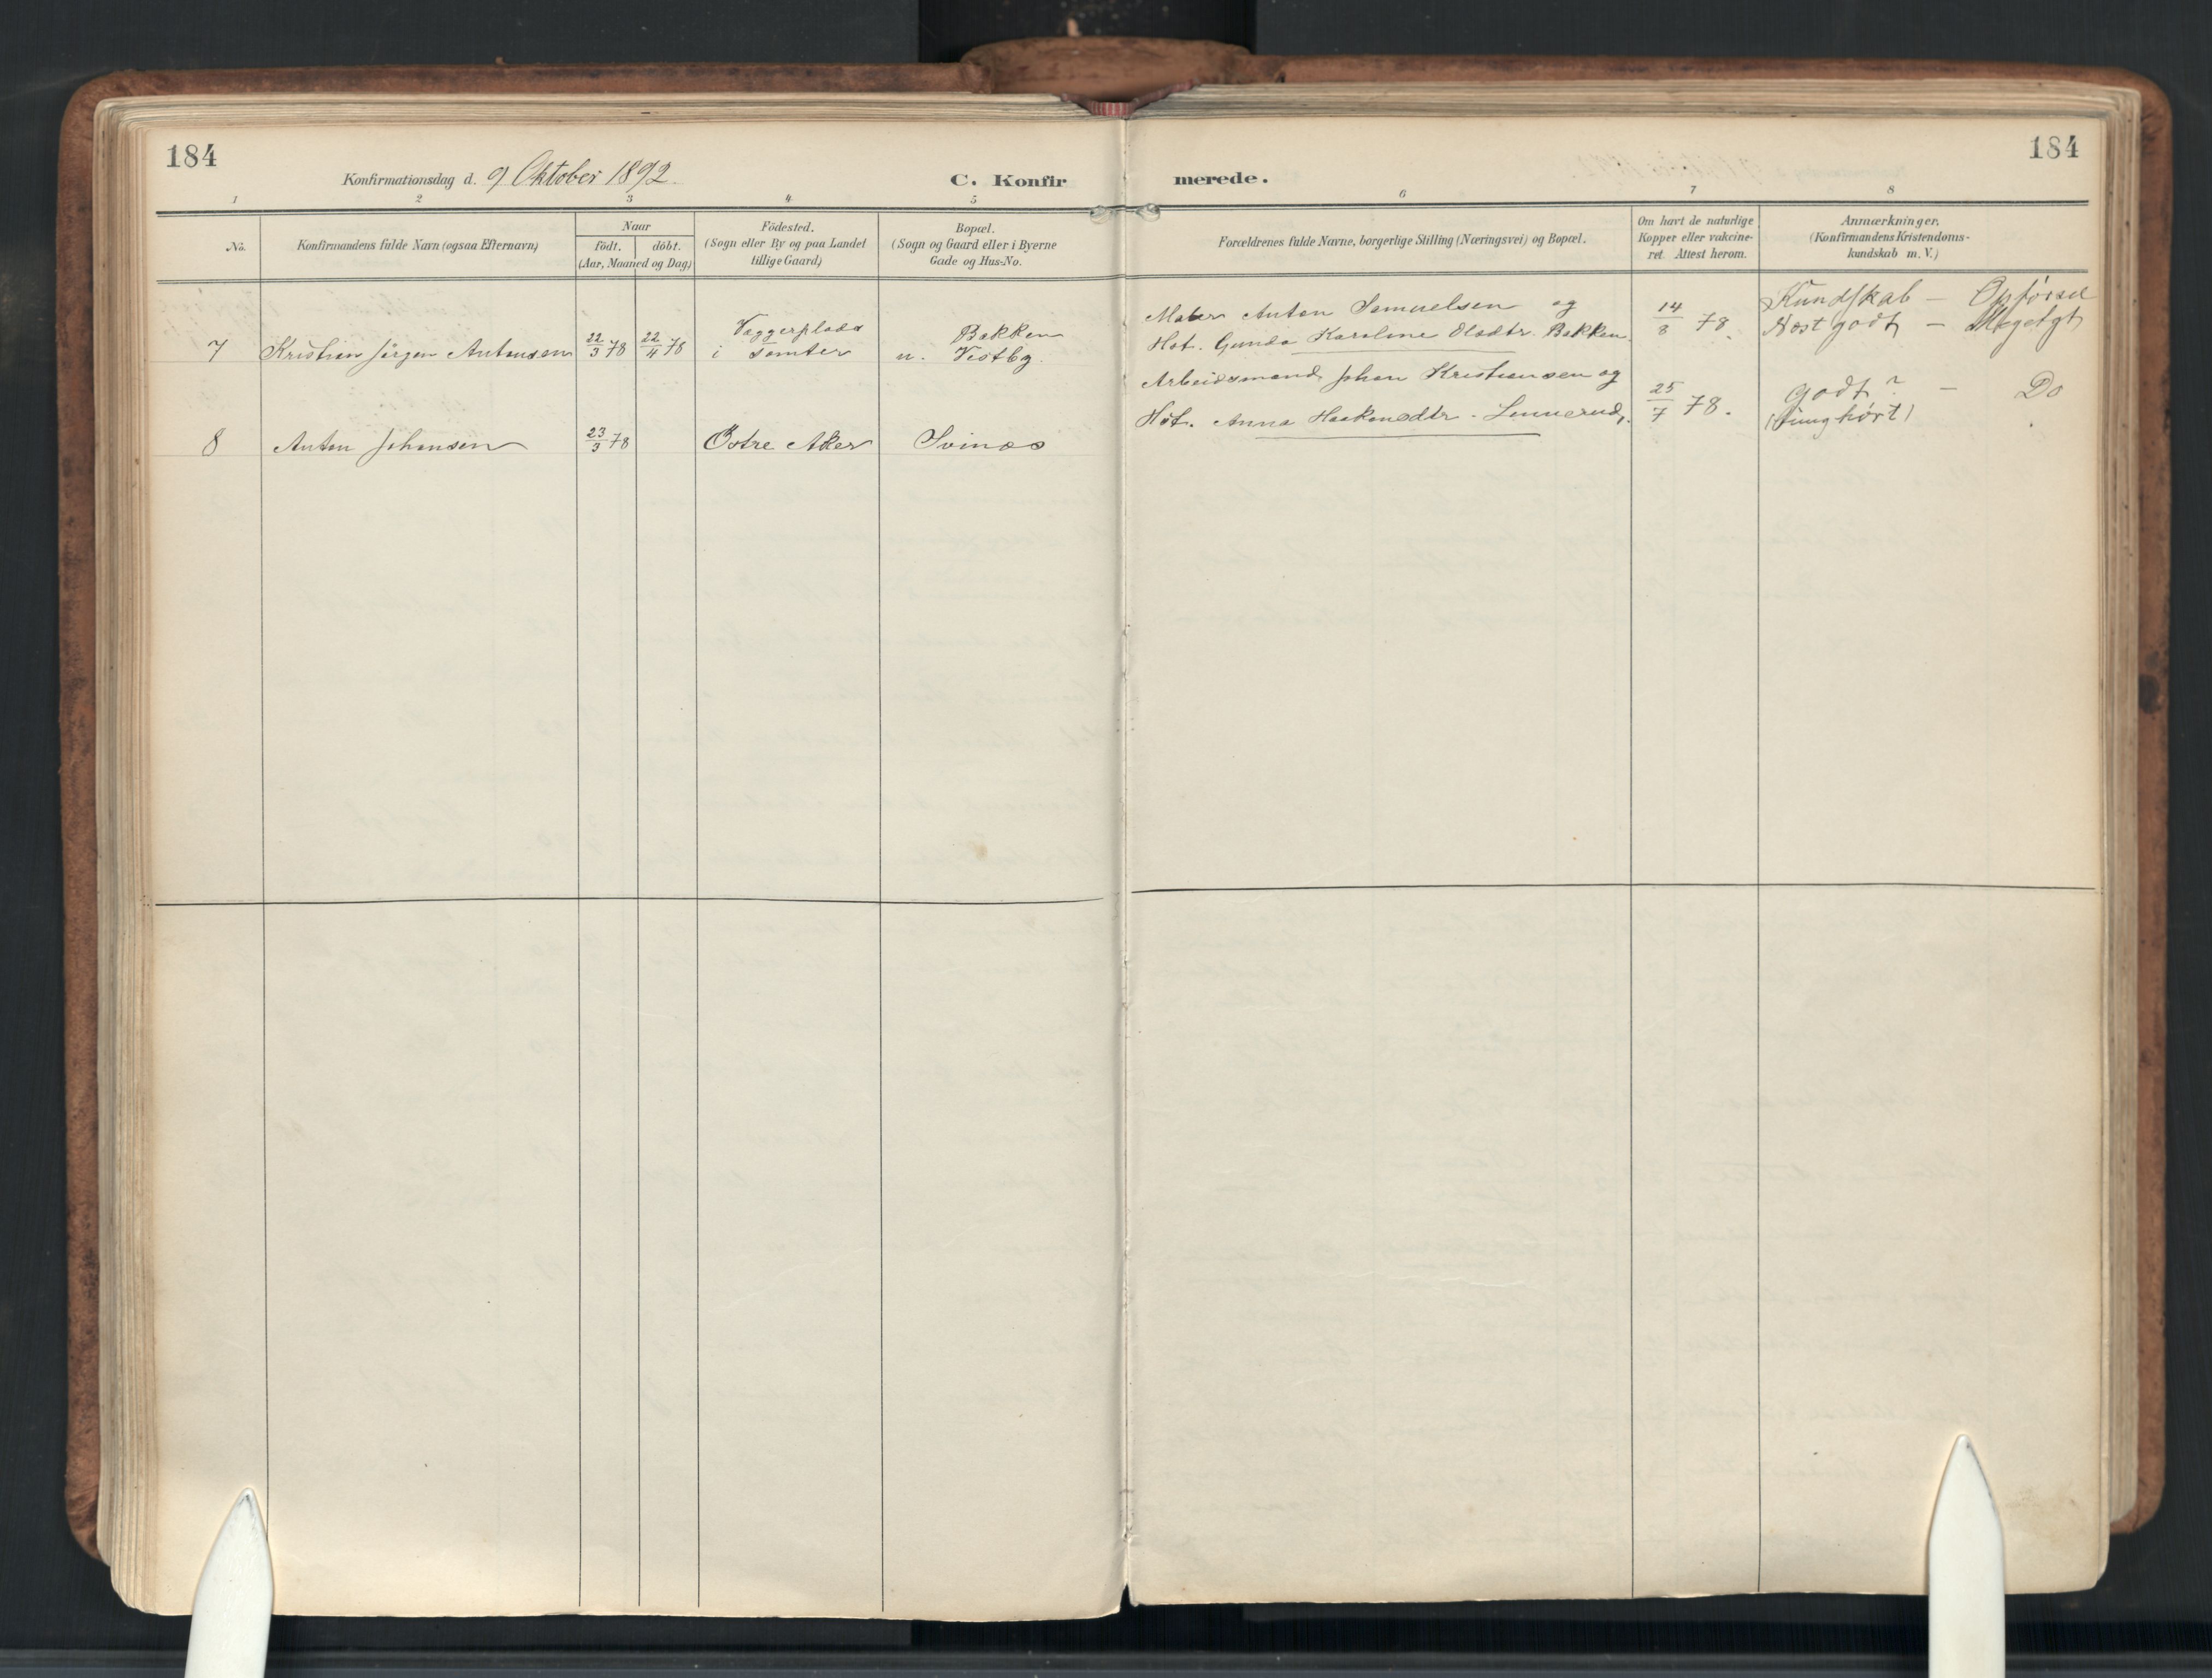 184
184
Konfirmationsdag d. 9 Oktober 1892.
C. Konfirmerede.
1 2 3 4 5 6 7 8
No.
Konfirmandens fulde Navn (ogsaa Efternavn)
Naar
födt. döbt.
(Aar, Maaned og Dag)
Födested.
(Sogn eller By og paa Landet
tillige Gaard)
Bopæl.
(Sogn og Gaard eller i Byerne
Gade og Hus-No.
Forældrenes fulde Navne, borgerlige Stilling (Næringsvei) og Bopæl.
Om havt de naturlige
Kopper eller vakcine-
ret. Attest herom.
Anmærkninger,
(Konfirmandens Kristendoms-
kundskab m. V.)
7 Kristian Jörgen Antonsen 22/3 78 22/4 78
i Sømter
Bakken
u. Vestby.
Maler Anton Samuelsen og
Hst. Gunda Karoline Olsdtr. Bakken.
14/8 78.
Kundskab — Opførsel
Næst godt — Megetgt
8 Anton Johansen 23/3 78 Östre Aker Svinæs
Arbeidsmand Johan Kristiansen og
Hst. Anna Haakensdtr. Linnerud,
25/7 78.
Godt? — Do
(tunghørt)